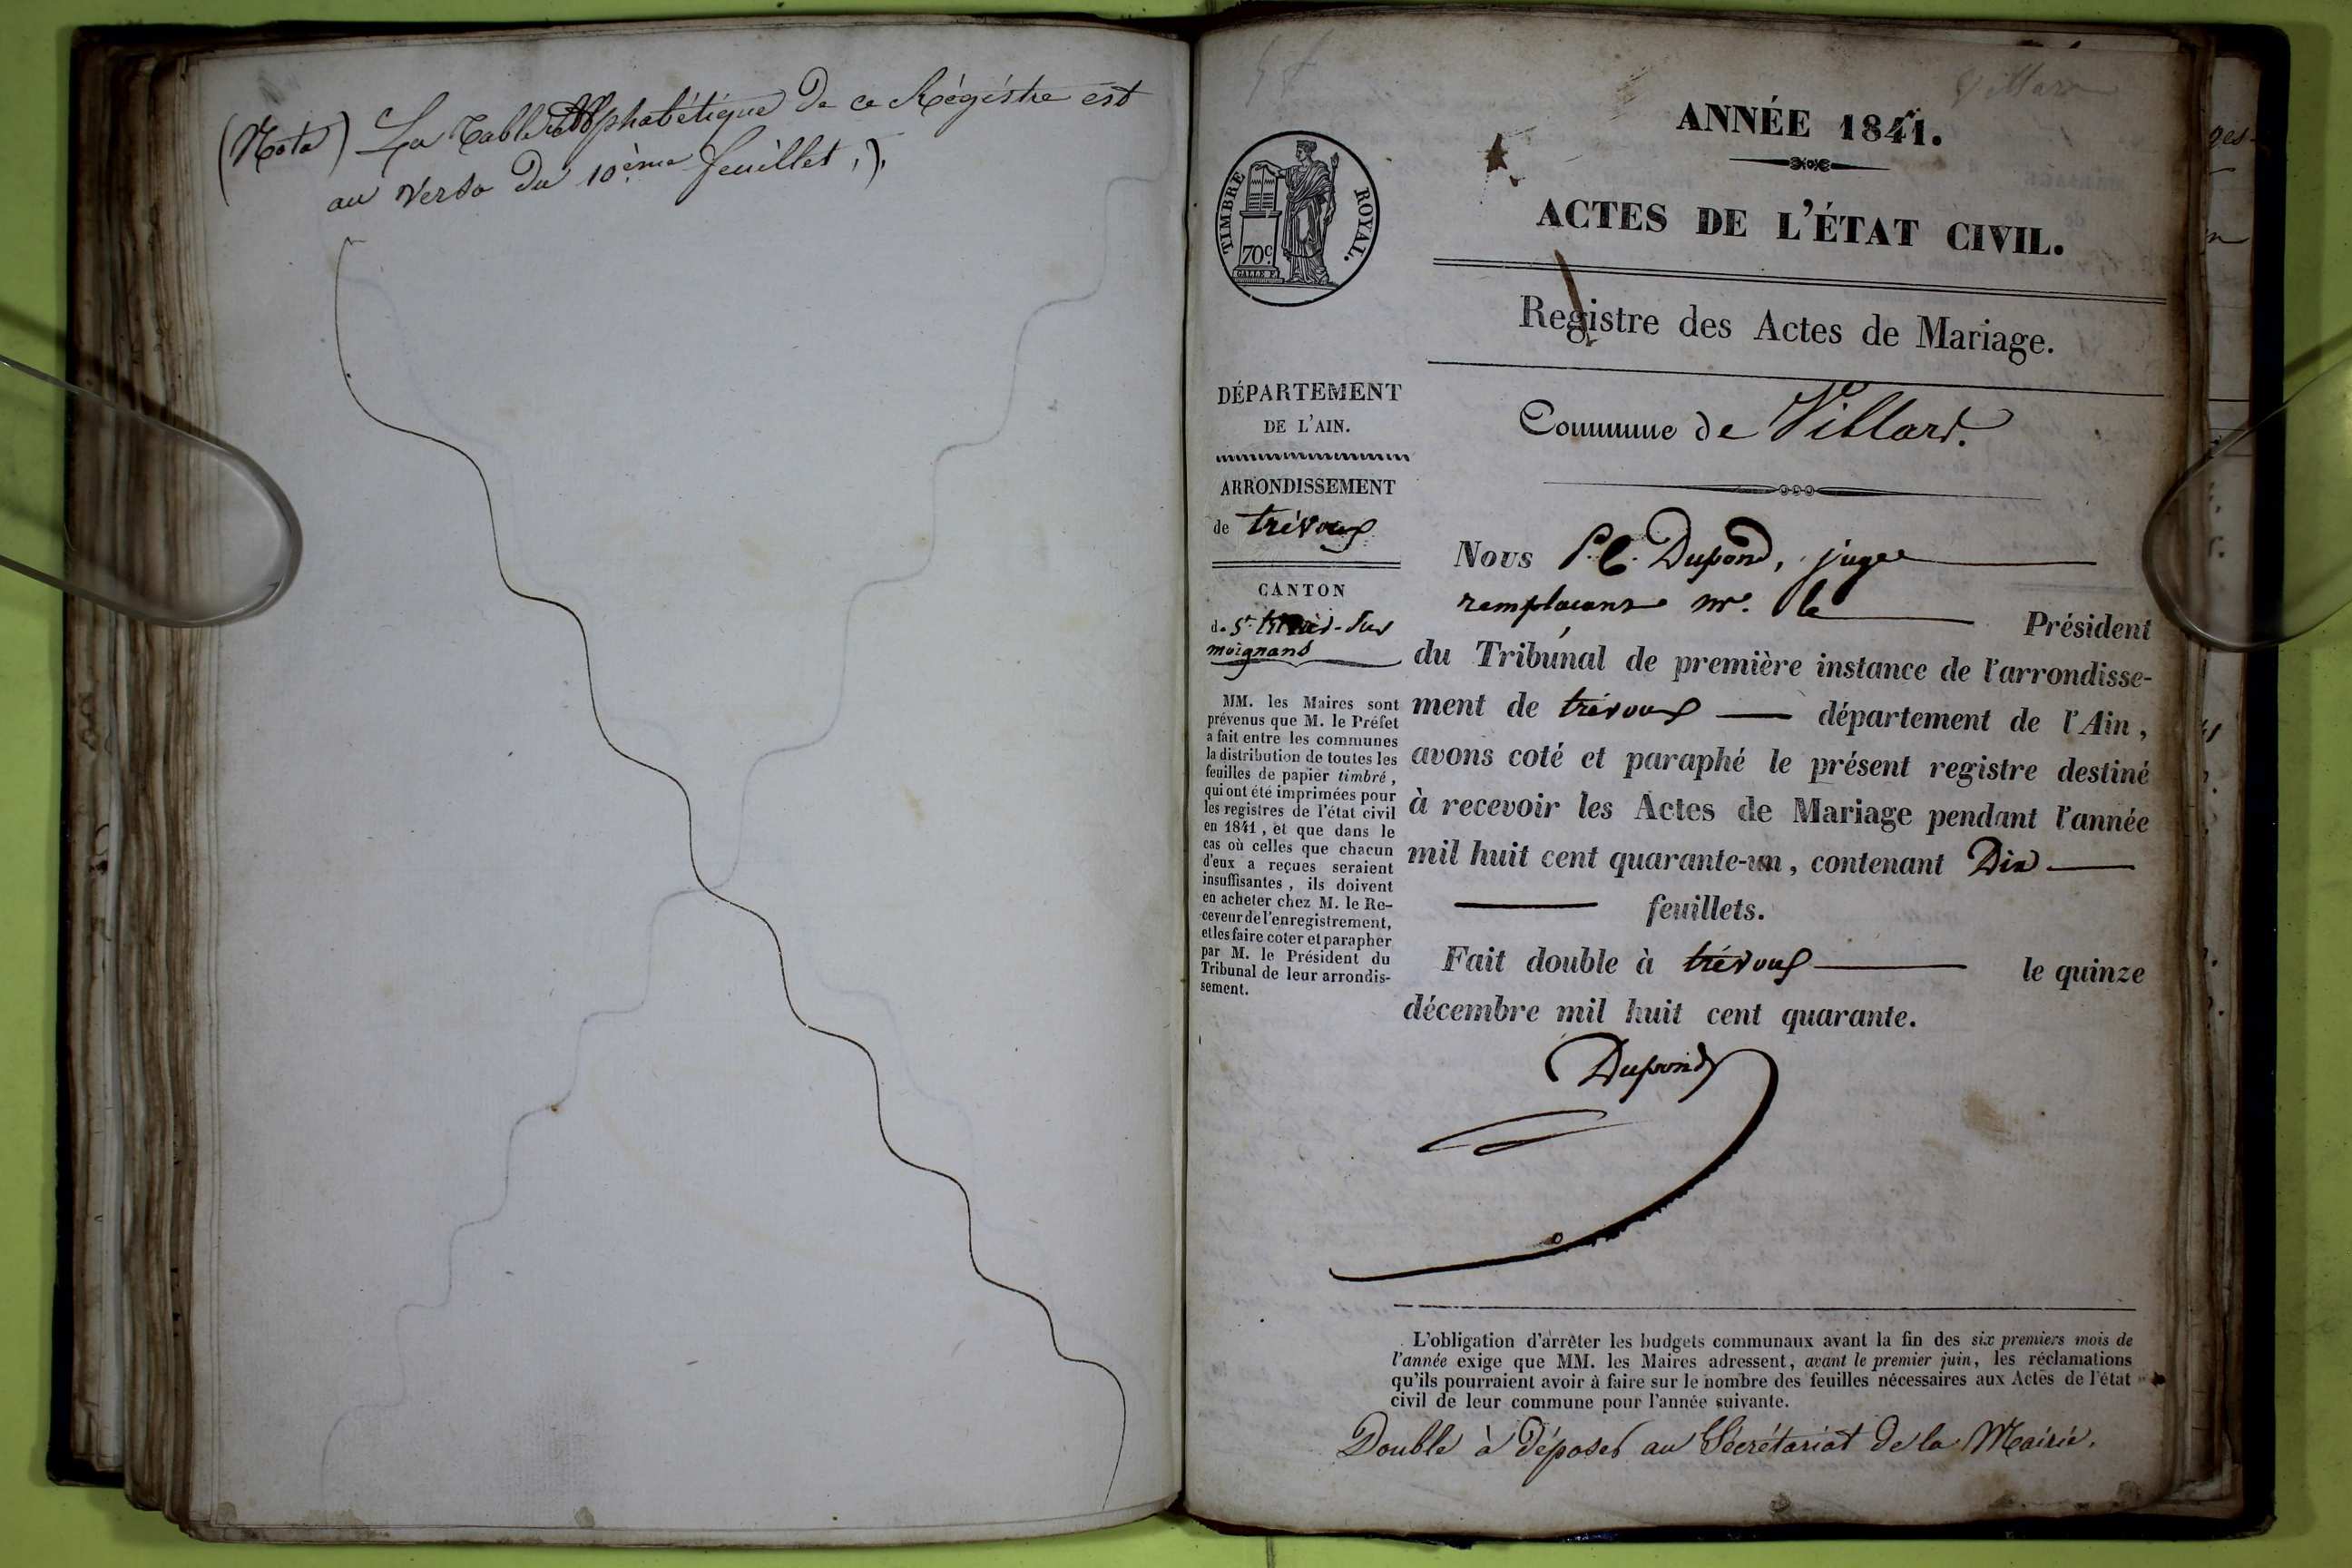 (Nota) La Table Alphabétique de ce Régistre est
au verso du 10ème feuillet.).
Villars
ANNÉE 1841.
ACTES DE L'ÉTAT CIVIL.
Registre des Actes de Mariage.
TIMBRE ROYAL.
70c
DÉPARTEMENT
DE L'AIN.
ARRONDISSEMENT
de trévoux
CANTON
de St. trivier-sur
moignand
MM. les Maires sont
prévenus que M. le Préfet
a fait entre les communes
la distribution de toutes les
feuilles de papier timbré,
qui ont été imprimées pour
les registres de l'état civil
en 1841, et que dans le
cas où celles que chacun
d'eux a reçues seraient
insuffisantes, ils doivent
en acheter chez M. le Re-
ceveur de l'enregistrement,
et les faire coter et parapher
par M. le Président du
Tribunal de leur arrondis-
sement.
Commune de Villard.
Nous P. C. Dupond, juge
remplaçant mr. le Président
du Tribunal de première instance de l'arrondisse-
ment de trévoux département de l'Ain,
avons coté et paraphé le présent registre destiné
à recevoir les Actes de Mariage pendant l'année
mil huit cent quarante-un, contenant Dix
feuillets.
Fait double à trévoux le quinze
décembre mil huit cent quarante.
Dupond
L'obligation d'arrêter les budgets communaux avant la fin des six premiers mois de
l'année exige que MM. les Maires adressent, avant le premier juin, les réclamations
qu'ils pourraient avoir à faire sur le nombre des feuilles nécessaires aux Actes de l'état
civil de leur commune pour l'année suivante.
Double à déposer au Sécrétariat de la Mairie.